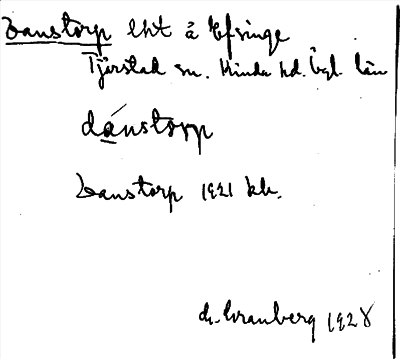 Danstorp lht å Efsinge
Tjärstad sn. Kinda hd. Ögl. län
dánstorp
Danstorp 1921 kk.
Granberg 1928